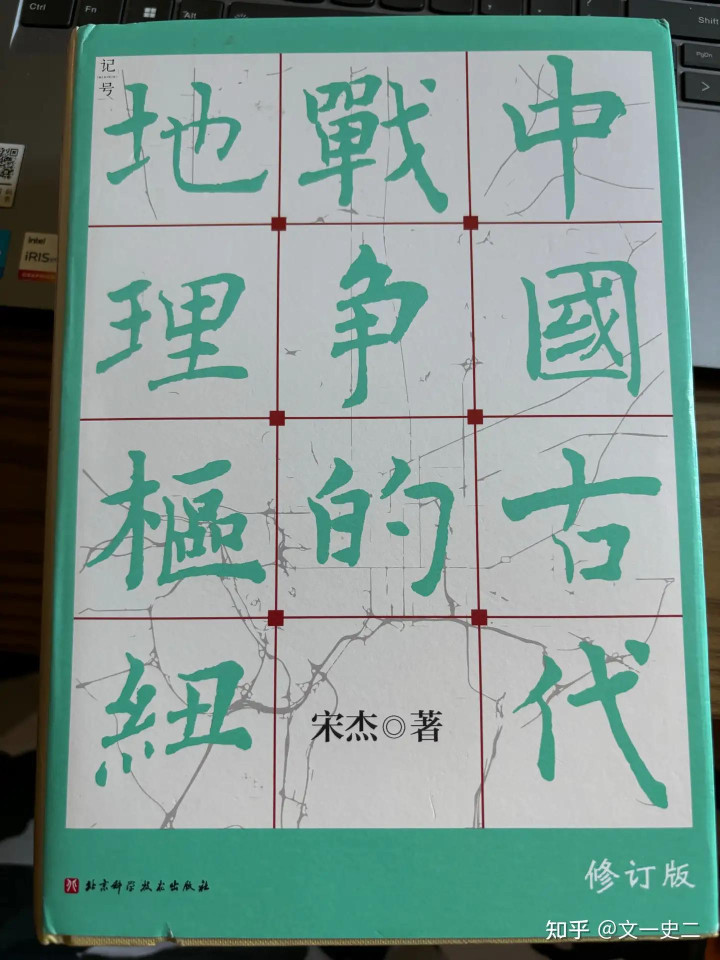 Ctrl
Fn
Alt
Shift
PgDn
intel
iRISxe
记号
中國古代
戰争的
地理樞紐
宋杰◎著
北京科学技术出版社
修订版
知乎 @文一史二